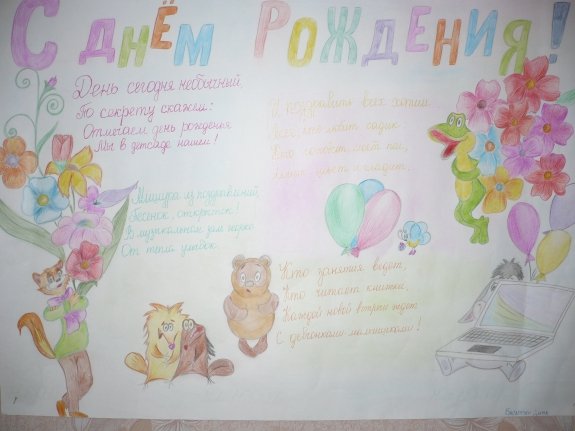 С ДНЁМ РОЖДЕНИЯ!
День сегодня необычный,
По секрету скажем:
Отмечаем день рождения
Мы в детсаде нашем!
Мишура из поздравлений,
Песенок, открыток!
В музыкальном зале жарко
От тепла улыбок.
И поздравить всех хотим
Всех, кто любит садик
Кто готовит, моет пол,
шьет и гладит.
Кто занятия ведет,
Кто читает книжки,
Каждой новой встречи ждет
С девчонками мальчишками!